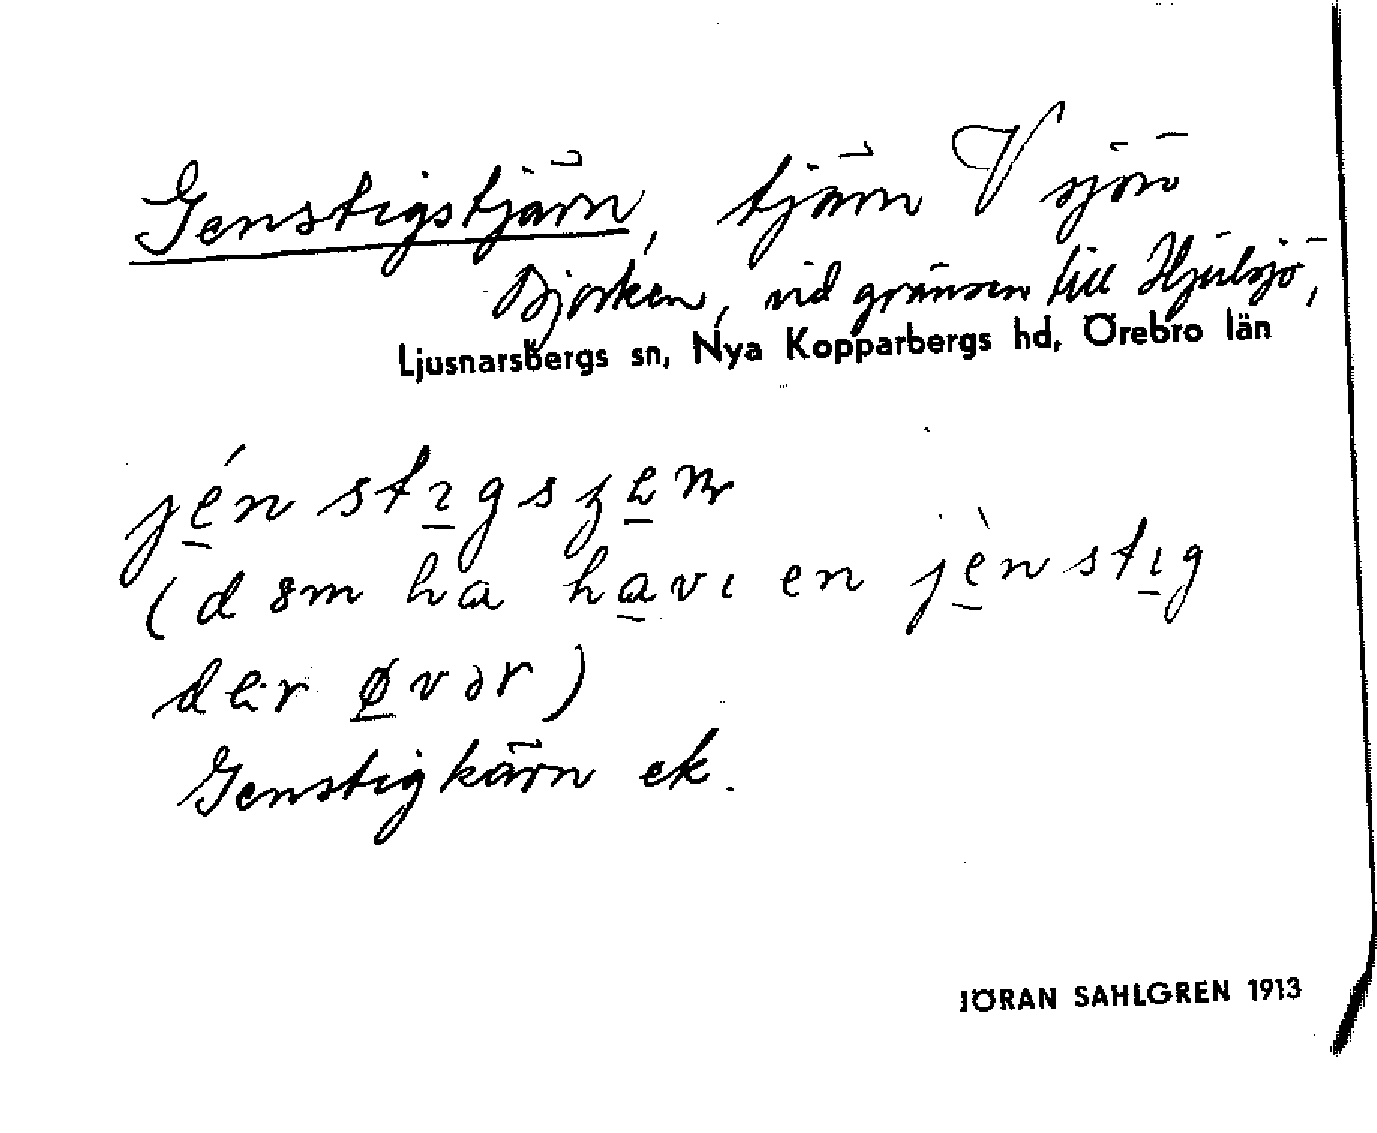 Genstigstjärn, tjärn V sjön
Björken, vid gränsen till Hjulsjö,
Ljusnarsbergs sn, Nya Kopparbergs hd, Örebro län
jén stıgs
(d8m ha havı en jènstıg
der øvər)
Genstigkärn ek.
JÖRAN SAHLGREN 1913